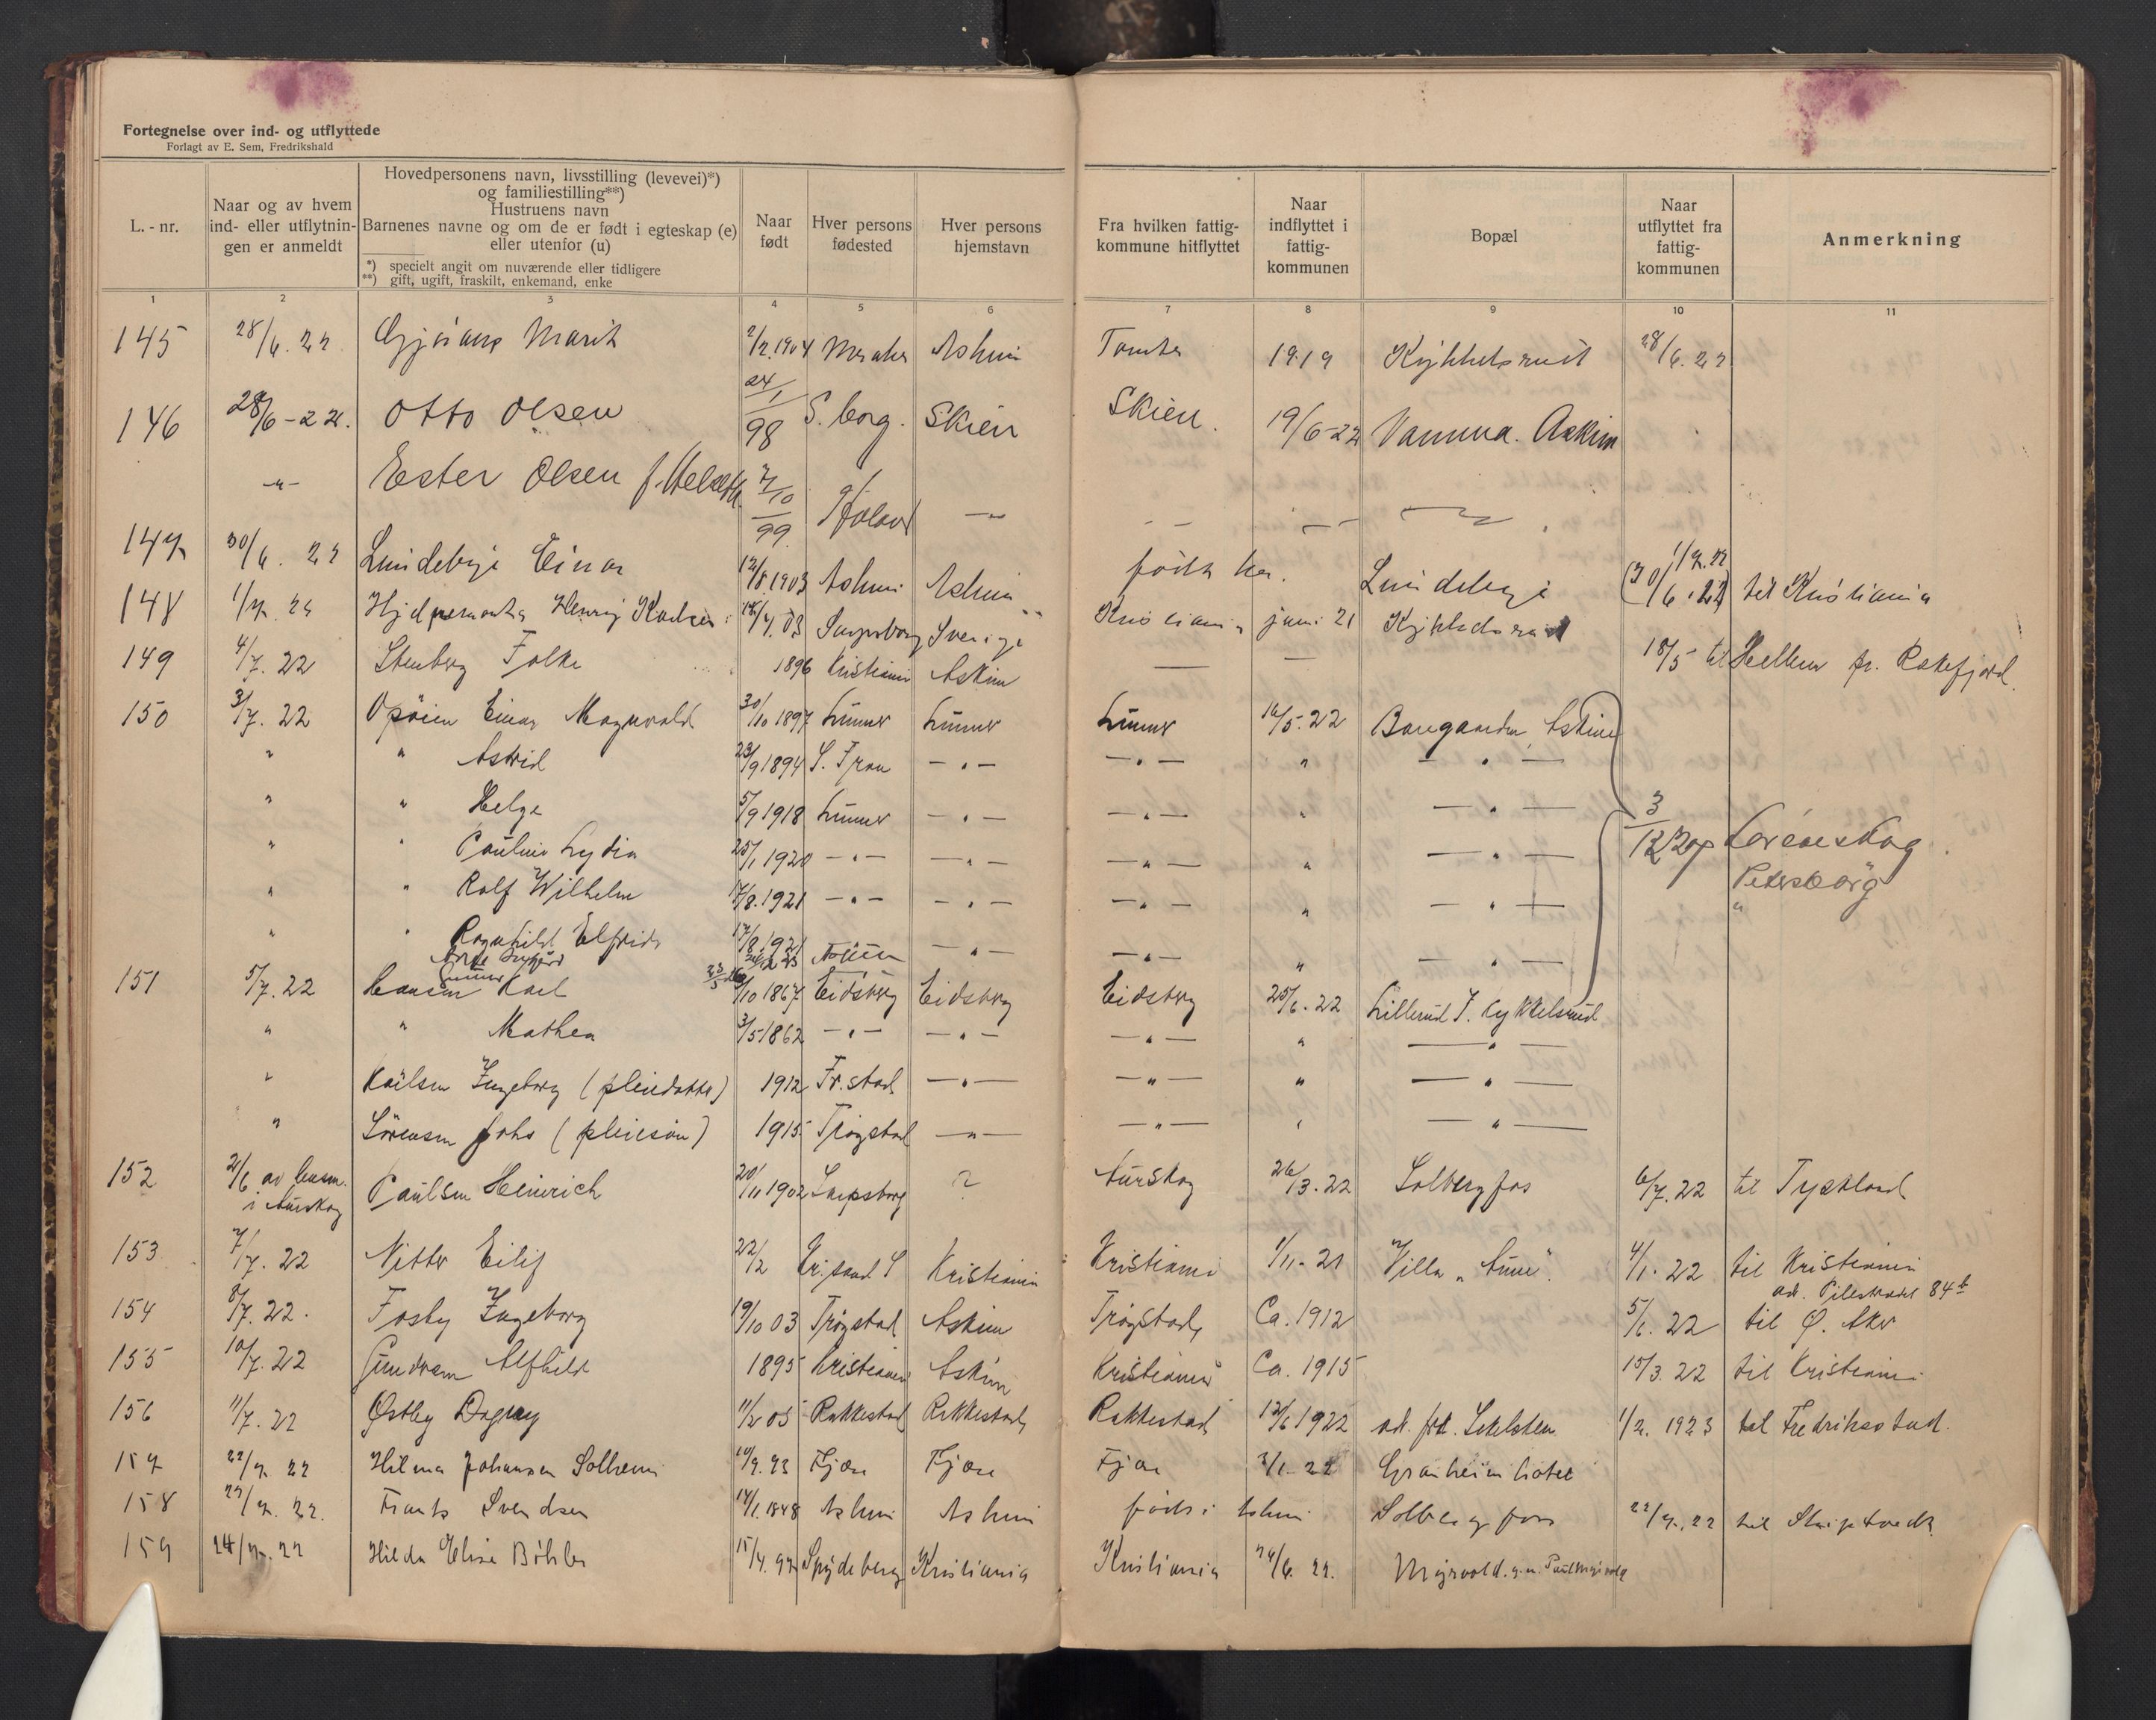 Fortegnelse over ind- og utflyttede
Forlagt av E. Sem, Fredrikshald
L. - nr.
Naar og av hvem ind- eller utflytnin- gen er anmeldt
Hovedpersonens navn, livsstilling (levevei)*)
og familiestilling**)
Hustruens navn
Barnenes navne og om de er født i egteskap (e)
eller utenfor (u)
*) specielt angit om nuværende eller tidligere
**) gift, ugift, fraskilt, enkemand, enke
Naar født
Hver persons fødested
Hver persons hjemstavn
Fra hvilken fattig- kommune hitflyttet
Naar indflyttet i fattig- kommunen
Bopæl
Naar utflyttet fra fattig- kommunen
Anmerkning
1 2 3 4 5 6 7 8 9 10 11
145 28/6. 22 Marit 2/2.1904 Askim Tomter 1919 Kykkelsrud 28/6. 22
146 28/6-22. Otto Olsen 24/1 98 S.borg. Skien Skien. 19/6-22 Vamma. Askim
-"- Ester Olsen f. 7/10 99.
147 30/6. 22 Lundebye Einar 12/8.1903 Askim Askim født her. Lundebye 1/7.22 (30/6.22) til Kristiania
148 1/7. 22 Henry Karlsen 03 Sarpsborg Sverige Kristiania juni 21 Kykkelsrud
149 4/7. 22 Stenberg Folke 1896 Kristiania Askim — — 18/5 til Hellum pr. Rakefjord.
150 3/7. 22 Opsien Einar Magnvald 30/10 1897 Lunner Lunner Lunner 16/5. 22 Askim
" " Astrid 23/9 1894 S. Fron -"- -"- " -"-
" " Helge 5/9 1918 Lunner -"- -"- " -"- 3/12
" " Pauline Lydia 25/1 1920 -"- -"- -"- " -"- Lørenskog
" " Rolf Wilhelm 17/8. 1921 -"- -"- -"- " -"- Petersborg
" " Ragnhild Elfrida 17/8. 1921 -"- -"- " -"-
151 5/7. 22 Hansen Karl /10 1867 Eidsberg Eidsberg Eidsberg 25/6. 22 Lillerud p. Kykkelsrud
" " Mathea 3/5 1862 -"- -"- -"- " -"-
" Karlsen Ingeborg (pleiedatter) 1912 Fr.stad -"- -"- " -"-
" Sørensen Johs (pleiesøn) 1915 Trøgstad -"- -"- " -"-
152 2/6 av lensm. i Aurskog Paulsen Heinrich 20/11 1902 Sarpsborg ? Aurskog 26/3. 22 Solbergfos 6/7. 22 til Tyskland
153 7/7. 22 Nitter Eilif 22/2 Kr.sand S Kristiania Kristiania 1/11. 21 Villa "Aune". 4/1. 22 til Kristiania
ad. Pilestrædet 84b
154 8/7. 22. Fosby Ingeborg 19/10 03 Trøgstad Askim Trøgstad Ca. 1912 5/1. 22 til Ø. Aker
155 10/7. 22 Gundersen Alfhild 1895 Kristiania Askim Kristiania Ca. 1915 15/3. 22 til Kristiania
156 11/7. 22 Østby Dagny 11/2 05 Rakkestad Rakkestad Rakkestad 12/6 1922 1/2. 1923 til Fredrikstad.
157 22/7. 22 Hilma Johansen Solheim Fjære Fjære Fjære 22 Granheim hotel
158 22/7. 22. Frants Svendsen 14/1. 1848 Askim Askim født i Askim Solbergfoss 22/7. 22 til Skiptvedt
159 24/7. 22 Hilda Elise Bøhler 15/4. 97 Spydeberg Kristiania Kristiania 24/6. 22.